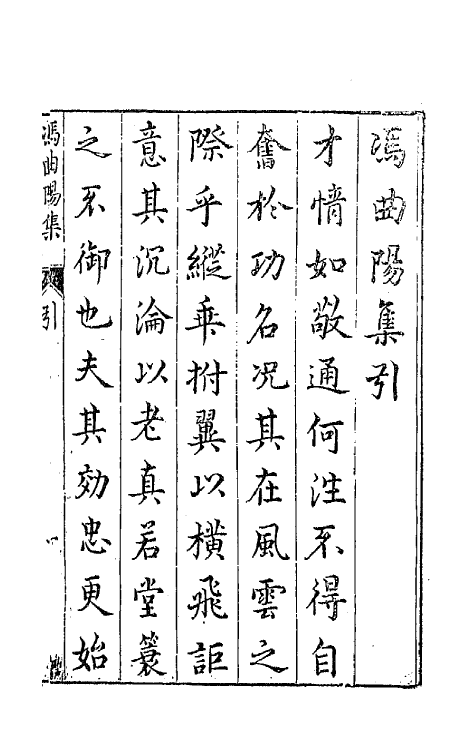 馮曲陽集引
才情如敬通何往不得自
奮於功名况其在風雲之
際乎縱乘拊翼以橫飛詎
意其沉淪以老真若堂簔
之不御也夫其効忠更始
馮曲陽集
引
一